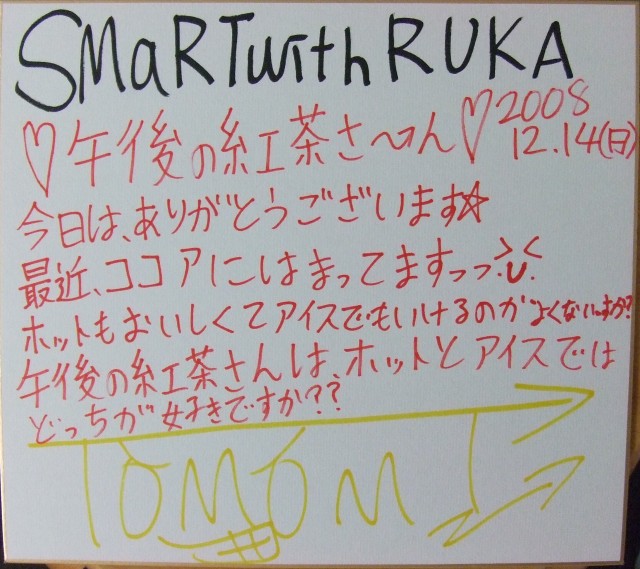 SMaRTwithRUKA
♡午後の紅茶さ〜ん♡2008
12.14(日)
今日は、ありがとうございます☆
最近、ココアにはまってますっっ
ホットもおいしくてアイスでもいけるのがよくないっすか?
午後の紅茶さんは、ホットとアイスでは
どっちが好きですか??
TOMOMI